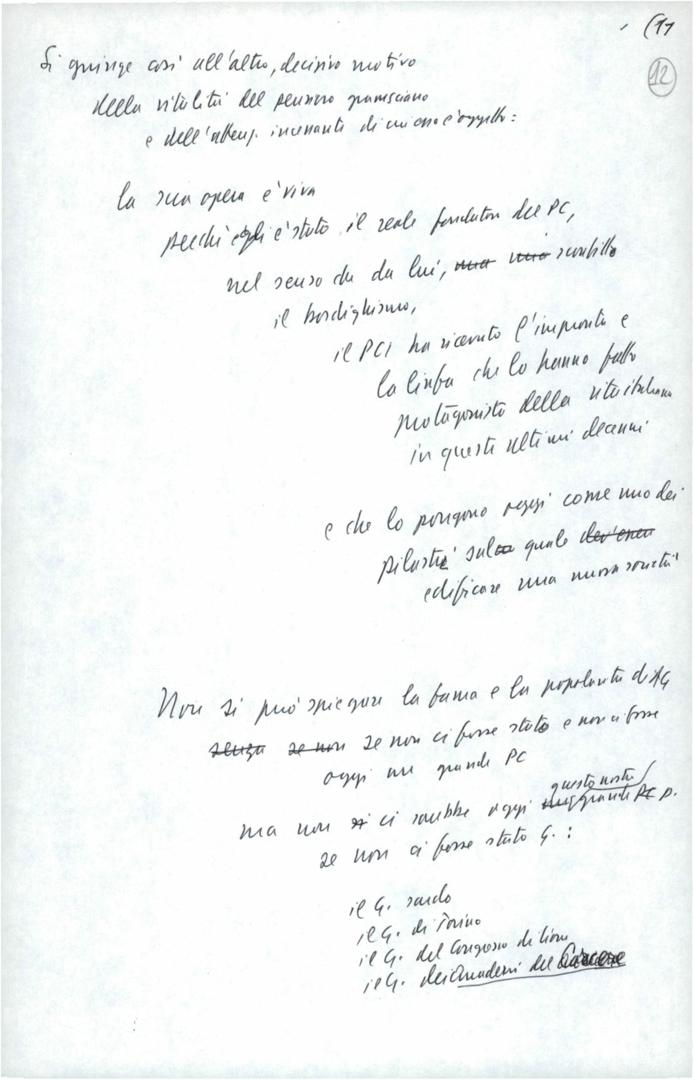 (17
12
Si giunge così all'altro, decisivo motivo
della vitalità del pensiero gramsciano
e dell'attenz. incessante di cui esso è oggetto:
la sua opera è viva
perché egli è stato il reale fondatore del PC,
nel senso che da lui, sconfitto
il bordighismo,
il PCI ha ricevuto l'impronta e
la linfa che lo hanno fatto
protagonista della vita italiana
in questi ultimi decenni
e che lo pongono oggi come uno dei
pilastri sul quale
edificare una nuova società
Non si può spiegare la fama e la popolarità di AG
senza se non se non ci fosse stato e non ci fosse
oggi un grande PC
questo nostro
ma non si ci sarebbe oggi grande PC p.
se non ci fosse stato G. :
il G. sardo
il G. di Torino
il G. del Congresso di Lione
il G. dei Quaderni del Carcere